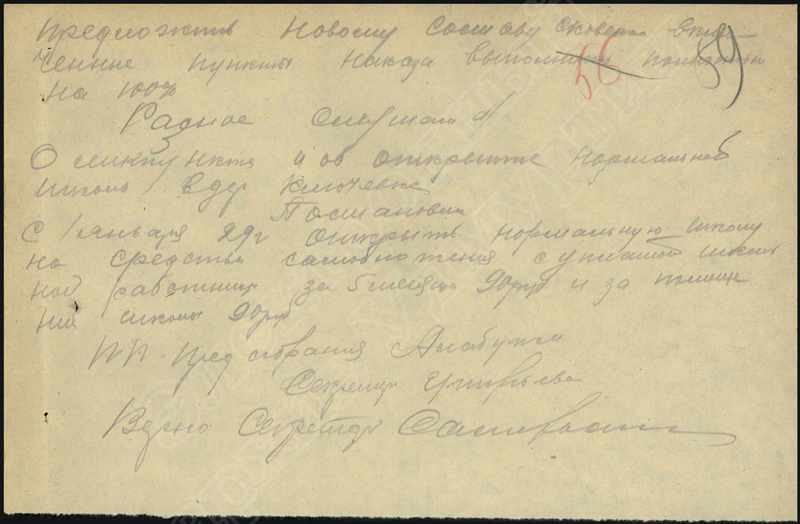 предложить Новому Составу
ченные пункты наказа выполнить
на 100%
56
59
Разное Слушали
О ликпункте и об открытие нормальной
школы в дер Ключевке
Постановили
С 1 января 29г открыть нормальную школу
на средства самообложения с уплатой школь
ной работнице за 5 месяцев 90 руб и за помеще
ние школы 90руб
ПП. Пред собрания
Секретарь Григорьева
Верно Секретарь